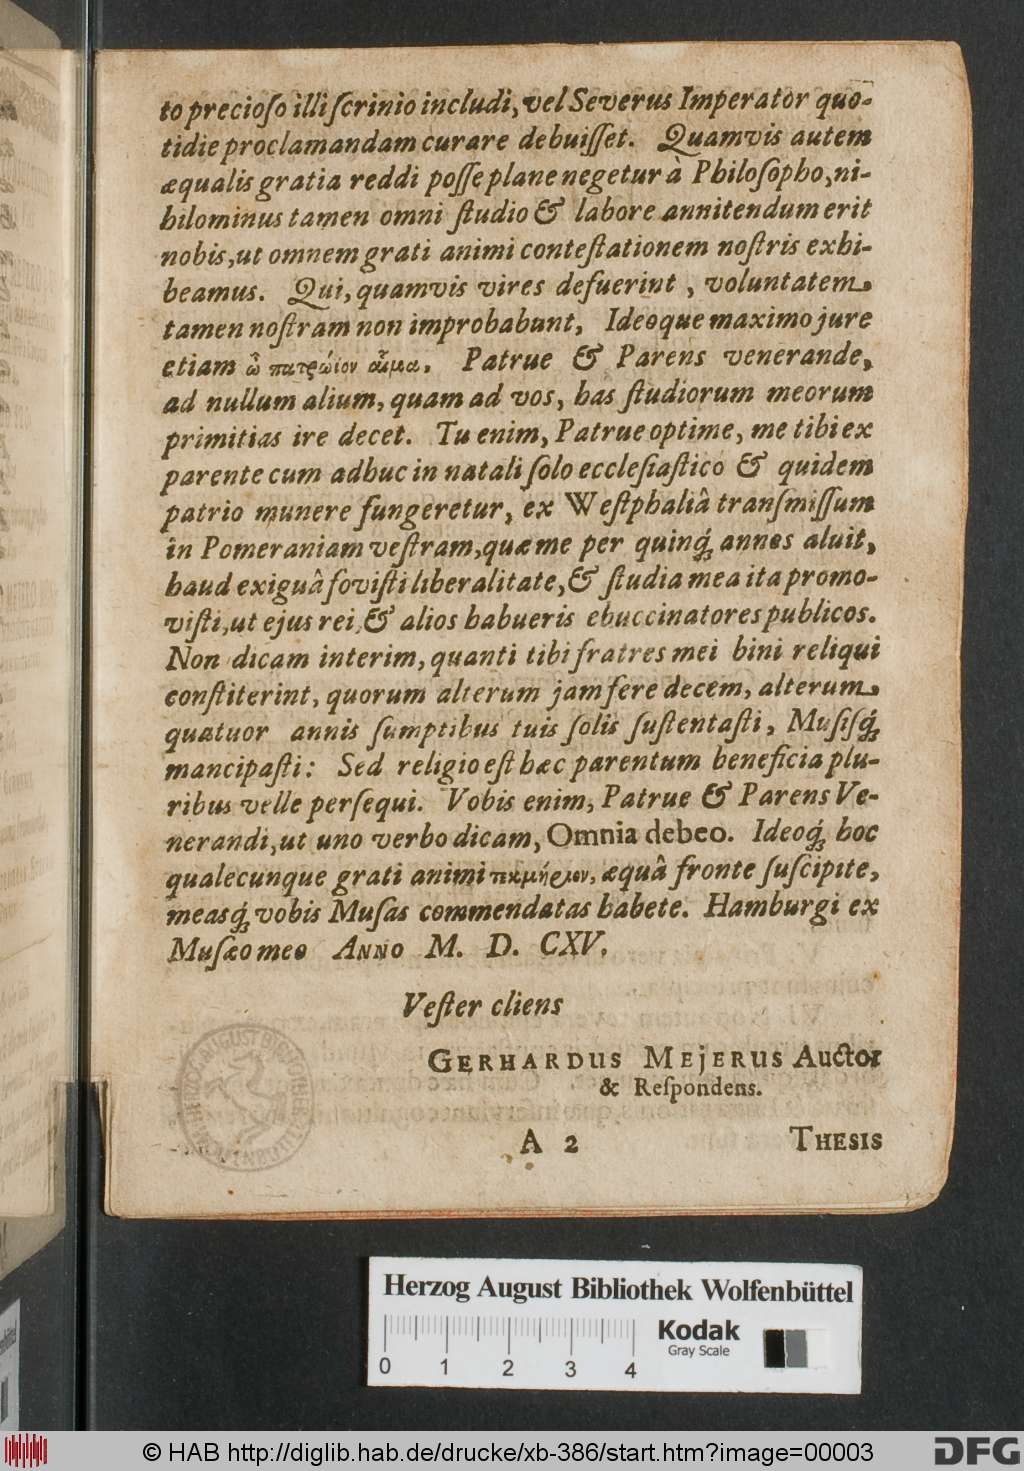 to precioſo illi ſcrinio includi, vel Severus Imperator quo-
tidie proclamandam curare debuiſſet. Quamvis autem
æqualis gratia reddi poſſe plane negetur à Philoſopho, ni-
hilominus tamen omni ſtudio & labore annitendum erit
nobis, ut omnem grati animi conteſtationem noſtris exhi-
beamus. Qui, quamvis vires defuerint, voluntatem
tamen noſtram non improbabunt, Ideoque maximo jure
etiam ὦ πατρώϊον αἷμα. Patrue & Parens venerande,
ad nullum alium, quam ad vos, has ſtudiorum meorum
primitias ire decet. Tu enim, Patrue optime, me tibi ex
parente cum adhuc in natali ſolo eccleſiaſtico & quidem
patrio munere fungeretur, ex Weſtphaliâ tranſmiſſum
in Pomeraniam veſtram, quæ me per quinq́ꝫ annos aluit,
haud exiguâ foviſti liberalitate, & ſtudia mea ita promo-
viſti, ut ejus rei, & alios habueris ebuccinatores publicos.
Non dicam interim, quanti tibi fratres mei bini reliqui
conſtiterint, quorum alterum jam fere decem, alterum
quatuor annis ſumptibus tuis ſolis ſuſtentaſti, Muſiſq́ꝫ
mancipaſti: Sed religio eſt hæc parentum beneficia plu-
ribus velle perſequi. Vobis enim, Patrue & Parens Ve-
nerandi, ut uno verbo dicam, Omnia debeo. Ideoq́ꝫ hoc
qualecunque grati animi τεκμήριον, æquâ fronte ſuſcipite,
measq́ꝫ vobis Muſas commendatas habete. Hamburgi ex
Muſæo meo ANNO M. D. CXV.
Veſter cliens
GERHARDUS MEJERUS Auctor
& Reſpondens.
A 2 THESIS
Herzog August Bibliothek Wolfenbüttel
0 1 2 3 4
Kodak
Gray Scale
© HAB http://diglib.hab.de/drucke/xb-386/start.htm?image=00003
DFG